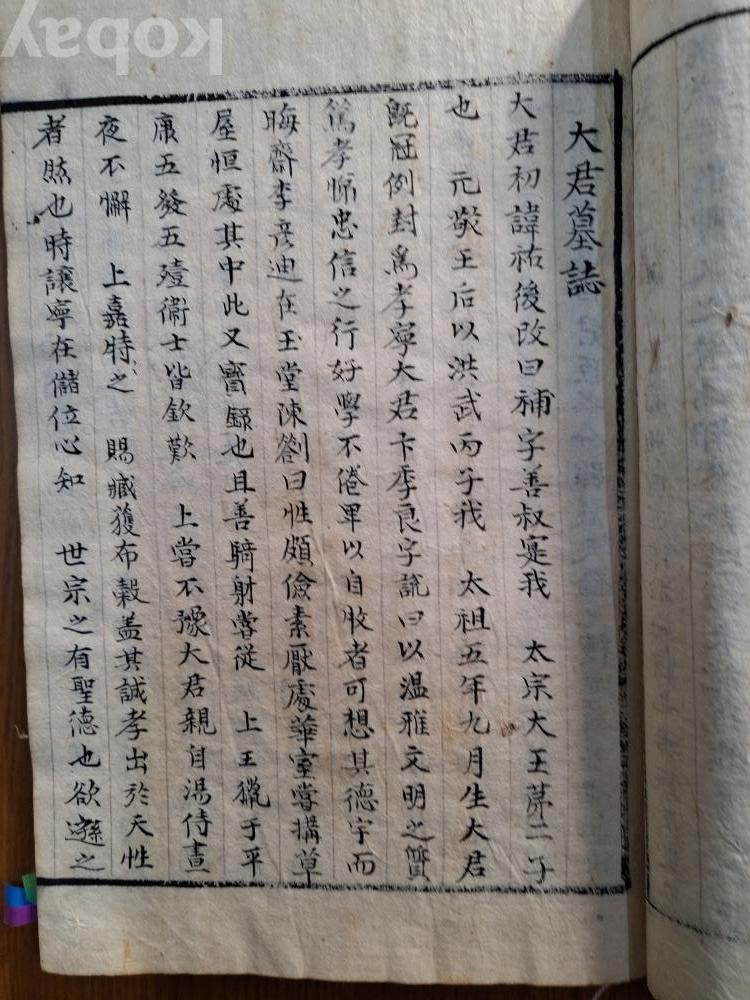 大君墓誌
大君初諱祐後改曰補字善叔寔我 太宗大王苐二子
也 元敬王后以洪武丙子我 太祖五年九月生大君
旣冠例封爲孝寧大君卞季良字說曰以温雅文明之質
篤孝悌忠信之行好學不倦卑以自牧者可想其德宇而
晦齋李彦迪在玉堂陳劄曰性頗儉素厭處華室嘗搆草
屋恒處其中此又實錄也且善騎射嘗從 上王獵于平
康五發五殪衛士皆欽歎 上嘗不豫大君親自湯侍晝
夜不懈 上嘉特之 賜臧獲布穀盖其誠孝出於天性
者然也時讓寧在儲位心知 世宗之有聖德也欲遜之
kobay